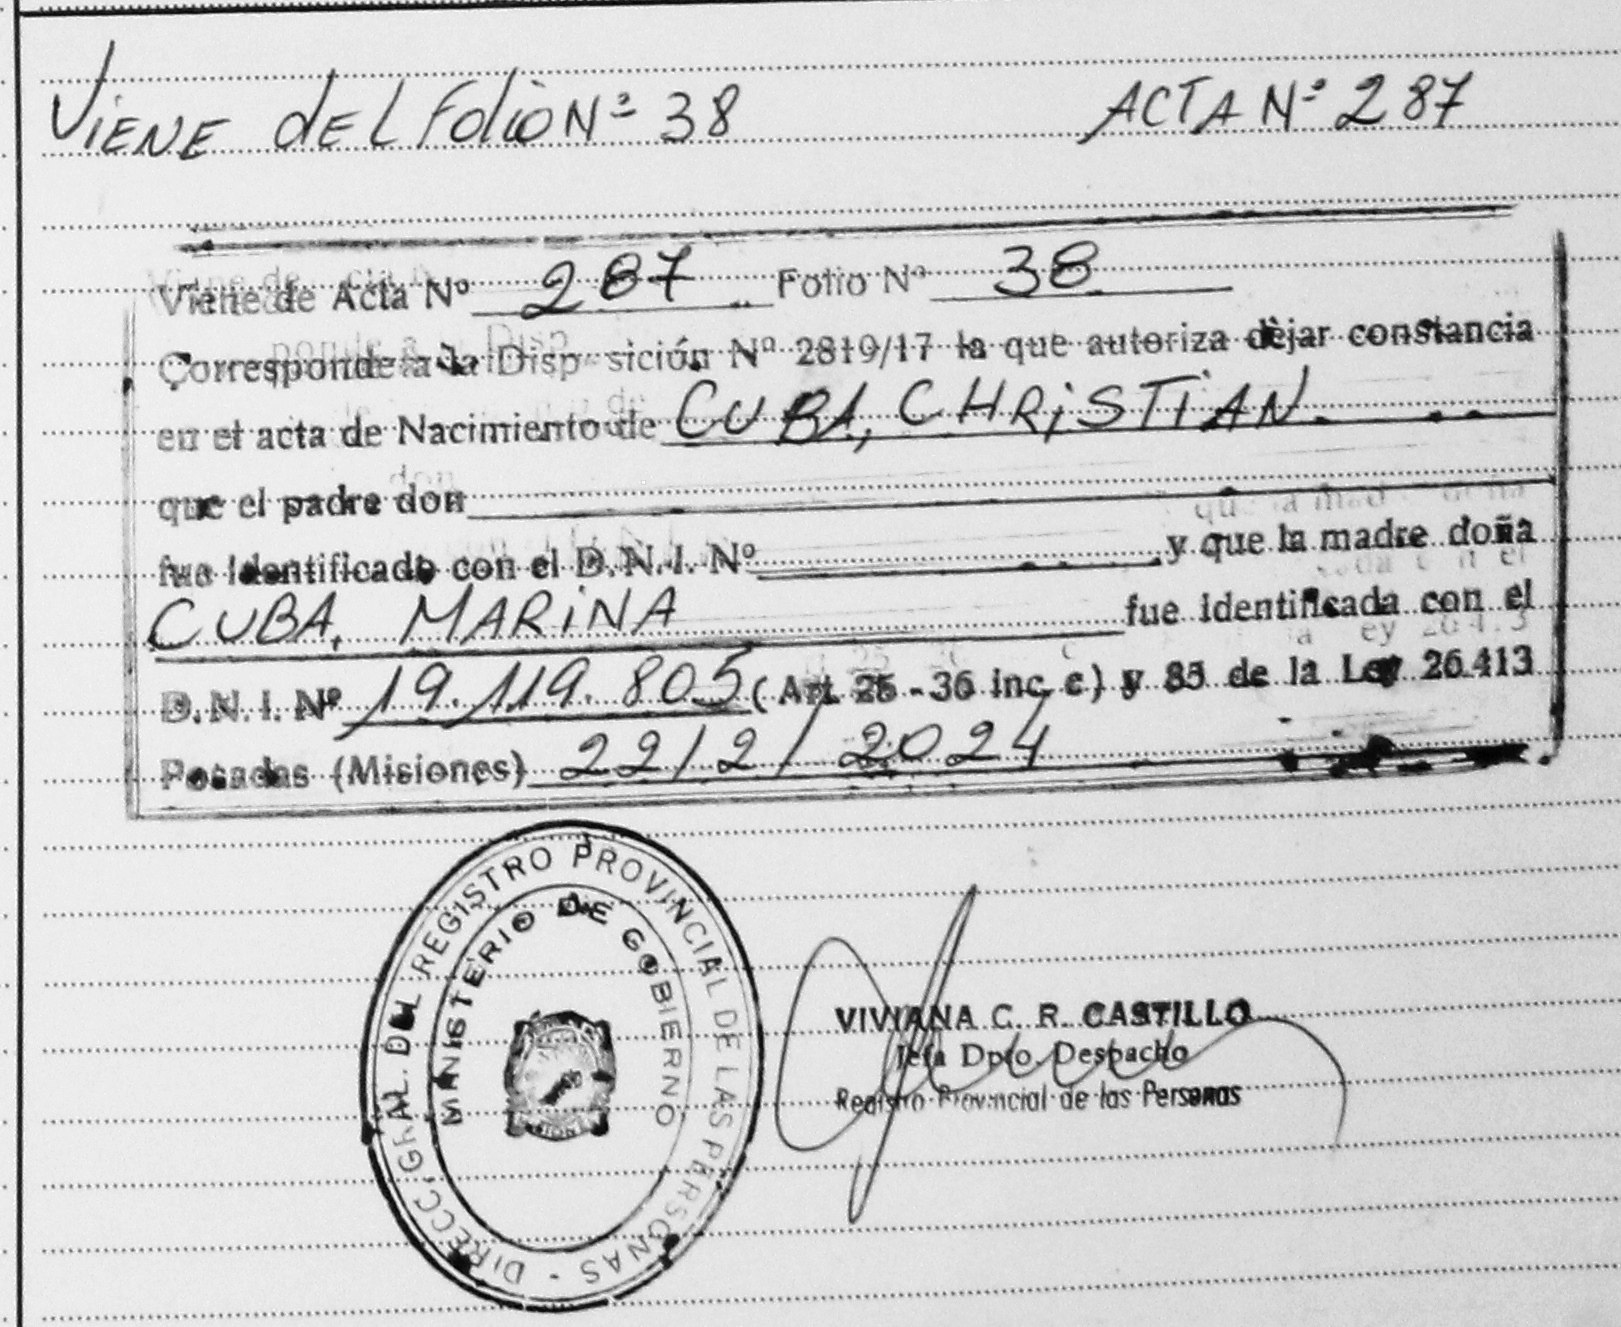 VIENE DEL FOLIO Nº 38 ACTA Nº 287
Viene de Acta Nº 287 Folio Nº 38
Corresponde a la Disp sición Nº 2819/17 la que autoriza dejar constancia
en el acta de Nacimiento de CUBA, CHRISTIAN.
que el padre don
fue identificado con el D.N.I. Nº y que la madre doña
CUBA, MARINA fue identificada con el
D.N.I. Nº 19.119.805 (Art. 25 - 36 inc. c) y 85 de la Ley 26.413
Posadas (Misiones) 22/2/2024
DIRECC. GRAL. DEL REGISTRO PROVINCIAL DE LAS PERSONAS -
MINISTERIO DE GOBIERNO
VIVIANA C. R. CASTILLO
Jefa Dpto. Despacho
Registro Provincial de las Personas